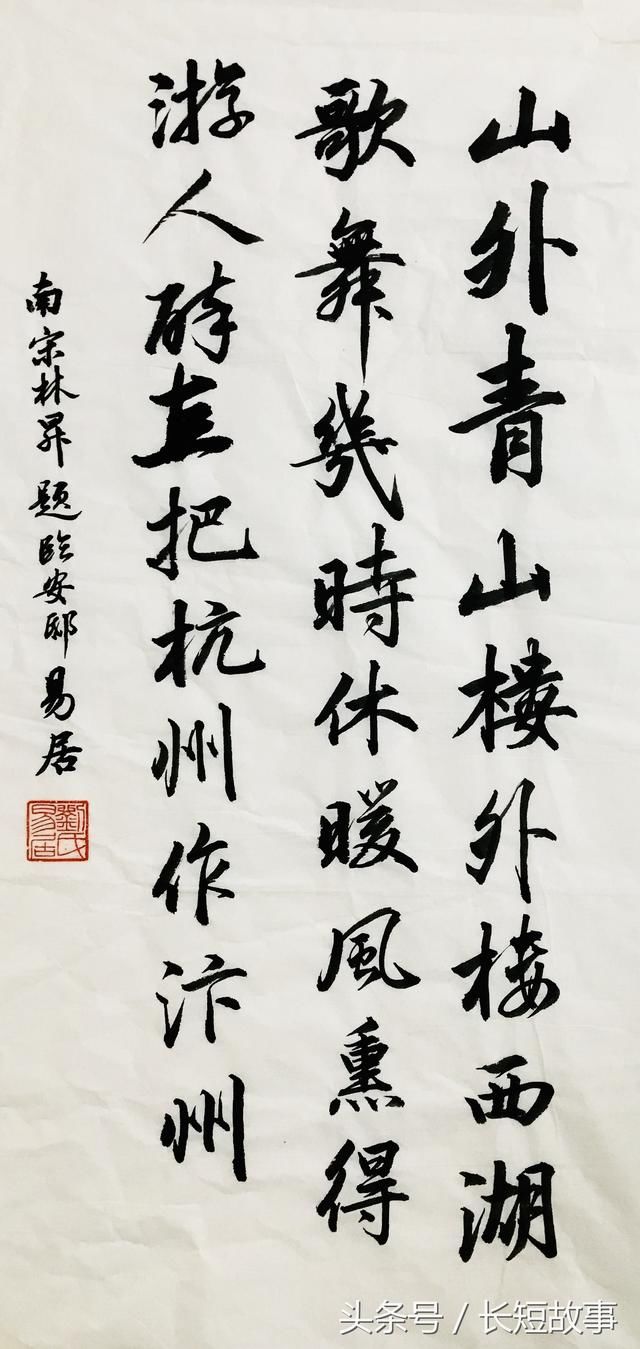 山外青山楼外楼西湖
歌舞幾時休暖風熏得
游人醉直把杭州作汴州
南宋林昇題臨安邸易居
劉氏易居
头条号 / 长短故事